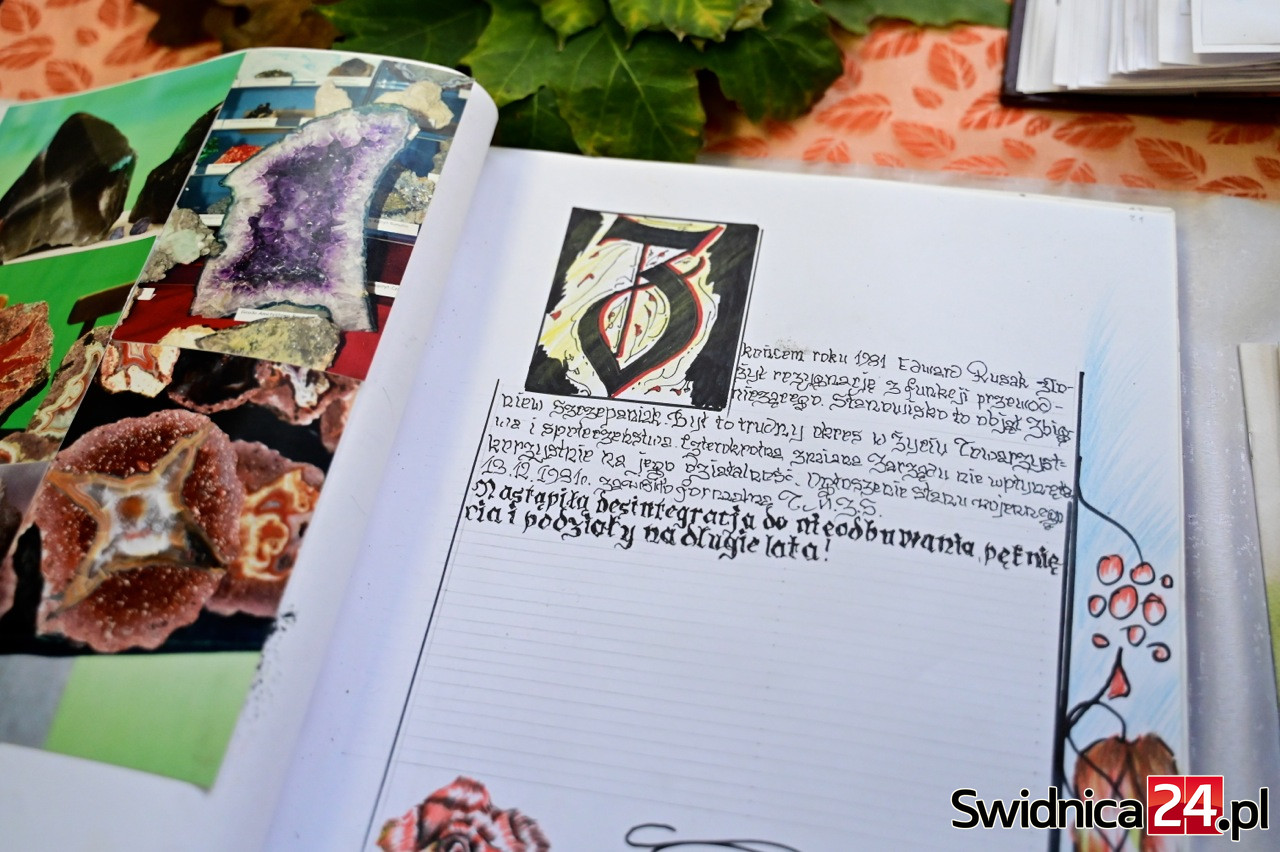 Z
końcem roku 1981 Edward Rusak zło-
żył rezygnację z funkcji przewod-
niczącego. Stanowisko to objął Zbig
niew Szczepaniak. Był to trudny okres w życiu Towarzyst-
wa i społeczeństwa. Czterokrotna zmiana Zarządu nie wpłynęła
korzystnie na jego działalność. Ogłoszenie stanu wojennego
13.12.1981r. zawiesiło formalną T.M.Z.S.
Nastąpiła desintegracja do nieodbuwania, pęknię
cia i podziały na długie lata!
Swidnica24.pl